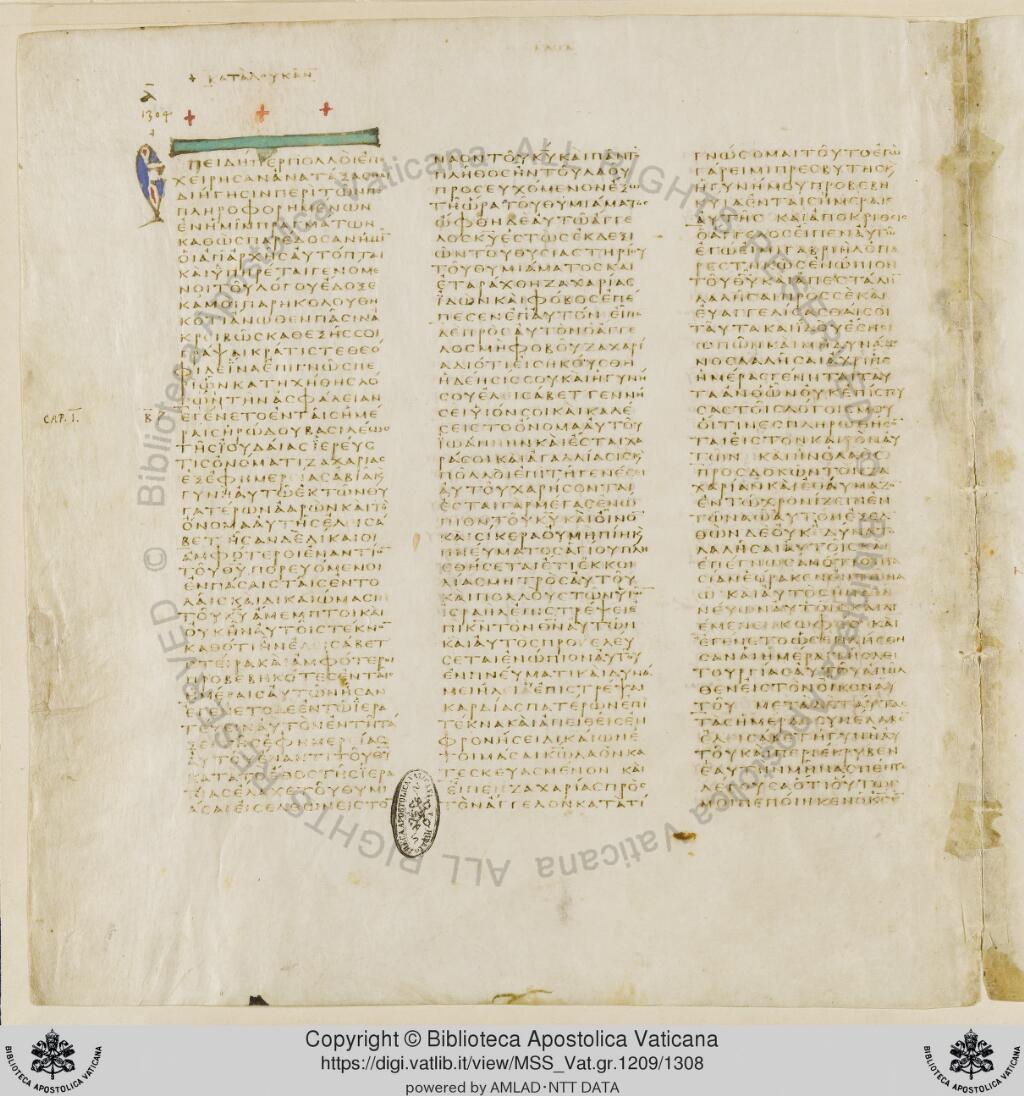 + ΚΑΤΑ ΛΟΥΚΑΝ
Α
1304
+ + +
ΕΠΕΙΔΗΠΕΡ ΠΟΛΛΟΙ ΕΠΕ
ΧΕΙΡΗΣΑΝ ΑΝΑΤΑΞΑΣΘΑΙ
ΔΙΗΓΗΣΙΝ ΠΕΡΙ ΤΩΝ ΠΕ
ΠΛΗΡΟΦΟΡΗΜΕΝΩΝ
ΕΝ ΗΜΙΝ ΠΡΑΓΜΑΤΩΝ
ΚΑΘΩΣ ΠΑΡΕΔΟΣΑΝ ΗΜΙ
ΟΙ ΑΠ ΑΡΧΗΣ ΑΥΤΟΠΤΑΙ
ΚΑΙ ΥΠΗΡΕΤΑΙ ΓΕΝΟΜΕ
ΝΟΙ ΤΟΥ ΛΟΓΟΥ ΕΔΟΞΕ
ΚΑΜΟΙ ΠΑΡΗΚΟΛΟΥΘΗ
ΚΟΤΙ ΑΝΩΘΕΝ ΠΑΣΙΝ Α
ΚΡΕΙΒΩΣ ΚΑΘΕΞΗΣ ΣΟΙ
ΓΡΑΨΑΙ ΚΡΑΤΙΣΤΕ ΘΕΟ
ΦΙΛΕ ΙΝΑ ΕΠΙΓΝΩΣ ΠΕ
ΡΙ ΩΝ ΚΑΤΗΧΗΘΗΣ ΛΟ
ΓΩΝ ΤΗΝ ΑΣΦΑΛΕΙΑΝ
CAP. I. Β
ΕΓΕΝΕΤΟ ΕΝ ΤΑΙΣ ΗΜΕ
ΡΑΙΣ ΗΡΩΔΟΥ ΒΑΣΙΛΕΩΣ
ΤΗΣ ΙΟΥΔΑΙΑΣ ΙΕΡΕΥΣ
ΤΙΣ ΟΝΟΜΑΤΙ ΖΑΧΑΡΙΑΣ
ΕΞ ΕΦΗΜΕΡΙΑΣ ΑΒΙΑ Κ
ΓΥΝΗ ΑΥΤΩ ΕΚ ΤΩΝ ΘΥ
ΓΑΤΕΡΩΝ ΑΑΡΩΝ ΚΑΙ ΤΟ
ΟΝΟΜΑ ΑΥΤΗΣ ΕΛΕΙΣΑ
ΒΕΤ ΗΣΑΝ ΔΕ ΔΙΚΑΙΟΙ
ΑΜΦΟΤΕΡΟΙ ΕΝΑΝΤΙΟ
ΤΟΥ ΘΥ ΠΟΡΕΥΟΜΕΝΟΙ
ΕΝ ΠΑΣΑΙΣ ΤΑΙΣ ΕΝΤΟ
ΛΑΙΣ ΚΑΙ ΔΙΚΑΙΩΜΑΣΙΝ
ΤΟΥ ΚΥ ΑΜΕΜΠΤΟΙ ΚΑΙ
ΟΥΚ ΗΝ ΑΥΤΟΙΣ ΤΕΚΝΟ
ΚΑΘΟΤΙ ΗΝ Η ΕΛΕΙΣΑΒΕΤ
ΣΤΕΙΡΑ ΚΑΙ ΑΜΦΟΤΕΡΟΙ
ΠΡΟΒΕΒΗΚΟΤΕΣ ΕΝ ΤΑΙΣ
ΗΜΕΡΑΙΣ ΑΥΤΩΝ ΗΣΑΝ
ΕΓΕΝΕΤΟ ΔΕ ΕΝ ΤΩ ΙΕΡΑ
ΤΕΥΕΙΝ ΑΥΤΟΝ ΕΝ ΤΗ ΤΑ
ΞΕΙ ΤΗΣ ΕΦΗΜΕΡΙΑΣ
ΑΥΤΟΥ ΕΝΑΝΤΙ ΤΟΥ ΘΥ
ΚΑΤΑ ΤΟ ΕΘΟΣ ΤΗΣ ΙΕΡΑ
ΤΕΙΑΣ ΕΛΑΧΕ ΤΟΥ ΘΥΜΙ
ΑΣΑΙ ΕΙΣΕΛΘΩΝ ΕΙΣ ΤΟ
ΝΑΟΝ ΤΟΥ ΚΥ ΚΑΙ ΠΑΝ ΤΟ
ΠΛΗΘΟΣ ΗΝ ΤΟΥ ΛΑΟΥ
ΠΡΟΣΕΥΧΟΜΕΝΟΝ ΕΞΩ
ΤΗ ΩΡΑ ΤΟΥ ΘΥΜΙΑΜΑΤΟΣ
ΩΦΘΗ ΔΕ ΑΥΤΩ ΑΓΓΕ
ΛΟΣ ΚΥ ΕΣΤΩΣ ΕΚ ΔΕΞΙ
ΩΝ ΤΟΥ ΘΥΣΙΑΣΤΗΡΙΟΥ
ΤΟΥ ΘΥΜΙΑΜΑΤΟΣ ΚΑΙ
ΕΤΑΡΑΧΘΗ ΖΑΧΑΡΙΑΣ
ΙΔΩΝ ΚΑΙ ΦΟΒΟΣ ΕΠΕ
ΠΕΣΕΝ ΕΠ ΑΥΤΟΝ ΕΙΠΕ
ΔΕ ΠΡΟΣ ΑΥΤΟΝ Ο ΑΓΓΕ
ΛΟΣ ΜΗ ΦΟΒΟΥ ΖΑΧΑΡΙ
Α ΔΙΟΤΙ ΕΙΣΗΚΟΥΣΘΗ
Η ΔΕΗΣΙΣ ΣΟΥ ΚΑΙ Η ΓΥΝΗ
ΣΟΥ ΕΛΕΙΣΑΒΕΤ ΓΕΝΝΗ
ΣΕΙ ΥΙΟΝ ΣΟΙ ΚΑΙ ΚΑΛΕ
ΣΕΙΣ ΤΟ ΟΝΟΜΑ ΑΥΤΟΥ
ΙΩΑΝΗΝ ΚΑΙ ΕΣΤΑΙ ΧΑ
ΡΑ ΣΟΙ ΚΑΙ ΑΓΑΛΛΙΑΣΙΣ Κ
ΠΟΛΛΟΙ ΕΠΙ ΤΗ ΓΕΝΕΣΕΙ
ΑΥΤΟΥ ΧΑΡΗΣΟΝΤΑΙ
ΕΣΤΑΙ ΓΑΡ ΜΕΓΑΣ ΕΝΩ
ΠΙΟΝ ΤΟΥ ΚΥ ΚΑΙ ΟΙΝΟΝ
ΚΑΙ ΣΙΚΕΡΑ ΟΥ ΜΗ ΠΙΗ Κ
ΠΝΕΥΜΑΤΟΣ ΑΓΙΟΥ ΠΛΗ
ΣΘΗΣΕΤΑΙ ΕΤΙ ΕΚ ΚΟΙ
ΛΙΑΣ ΜΗΤΡΟΣ ΑΥΤΟΥ
ΚΑΙ ΠΟΛΛΟΥΣ ΤΩΝ ΥΙΩΝ
ΙΣΡΑΗΛ ΕΠΙΣΤΡΕΨΕΙ Ε
ΠΙ ΚΝ ΤΟΝ ΘΝ ΑΥΤΩΝ
ΚΑΙ ΑΥΤΟΣ ΠΡΟΣΕΛΕΥ
ΣΕΤΑΙ ΕΝΩΠΙΟΝ ΑΥΤΟΥ
ΕΝ ΠΝΕΥΜΑΤΙ ΚΑΙ ΔΥΝΑ
ΜΕΙ ΗΛΕΙΑ ΕΠΙΣΤΡΕΨΑΙ
ΚΑΡΔΙΑΣ ΠΑΤΕΡΩΝ ΕΠΙ
ΤΕΚΝΑ ΚΑΙ ΑΠΕΙΘΕΙΣ ΕΝ
ΦΡΟΝΗΣΕΙ ΔΙΚΑΙΩΝ Ε
ΤΟΙΜΑΣΑΙ ΚΩ ΛΑΟΝ ΚΑ
ΤΕΣΚΕΥΑΣΜΕΝΟΝ ΚΑΙ
ΕΙΠΕΝ ΖΑΧΑΡΙΑΣ ΠΡΟΣ
ΤΟΝ ΑΓΓΕΛΟΝ ΚΑΤΑ ΤΙ
ΓΝΩΣΟΜΑΙ ΤΟΥΤΟ ΕΓΩ
ΓΑΡ ΕΙΜΙ ΠΡΕΣΒΥΤΗΣ Κ
Η ΓΥΝΗ ΜΟΥ ΠΡΟΒΕΒΗ
ΚΥΙΑ ΕΝ ΤΑΙΣ ΗΜΕΡΑΙΣ
ΑΥΤΗΣ ΚΑΙ ΑΠΟΚΡΙΘΕΙΣ
Ο ΑΓΓΕΛΟΣ ΕΙΠΕΝ ΑΥΤΩ
ΕΓΩ ΕΙΜΙ ΓΑΒΡΙΗΛ Ο ΠΑ
ΡΕΣΤΗΚΩΣ ΕΝΩΠΙΟΝ
ΤΟΥ ΘΥ ΚΑΙ ΑΠΕΣΤΑΛΗΝ
ΛΑΛΗΣΑΙ ΠΡΟΣ ΣΕ ΚΑΙ
ΕΥΑΓΓΕΛΙΣΑΣΘΑΙ ΣΟΙ
ΤΑΥΤΑ ΚΑΙ ΙΔΟΥ ΕΣΗ ΣΙ
ΩΠΩΝ ΚΑΙ ΜΗ ΔΥΝΑΜΕ
ΝΟΣ ΛΑΛΗΣΑΙ ΑΧΡΙ ΗΣ
ΗΜΕΡΑΣ ΓΕΝΗΤΑΙ ΤΑΥ
ΤΑ ΑΝΘ ΩΝ ΟΥΚ ΕΠΙΣΤΕΥ
ΣΑΣ ΤΟΙΣ ΛΟΓΟΙΣ ΜΟΥ
ΟΙΤΙΝΕΣ ΠΛΗΡΩΘΗΣΟ
ΤΑΙ ΕΙΣ ΤΟΝ ΚΑΙΡΟΝ ΑΥ
ΤΩΝ ΚΑΙ ΗΝ Ο ΛΑΟΣ
ΠΡΟΣΔΟΚΩΝ ΤΟΝ ΖΑ
ΧΑΡΙΑΝ ΚΑΙ ΕΘΑΥΜΑΖΟ
ΕΝ ΤΩ ΧΡΟΝΙΖΕΙΝ ΕΝ
ΤΩ ΝΑΩ ΑΥΤΟΝ ΕΞΕΛ
ΘΩΝ ΔΕ ΟΥΚ ΕΔΥΝΑΤΟ
ΛΑΛΗΣΑΙ ΑΥΤΟΙΣ ΚΑΙ
ΕΠΕΓΝΩΣΑΝ ΟΤΙ ΟΠΤΑ
ΣΙΑΝ ΕΩΡΑΚΕΝ ΕΝ ΤΩ ΝΑ
Ω ΚΑΙ ΑΥΤΟΣ ΗΝ ΔΙΑ
ΝΕΥΩΝ ΑΥΤΟΙΣ ΚΑΙ ΔΙ
ΕΜΕΝΕΝ ΚΩΦΟΣ ΚΑΙ
ΕΓΕΝΕΤΟ ΩΣ ΕΠΛΗΣΘΗ
ΣΑΝ ΑΙ ΗΜΕΡΑΙ ΤΗΣ ΛΕΙ
ΤΟΥΡΓΙΑΣ ΑΥΤΟΥ ΑΠΗΛ
ΘΕΝ ΕΙΣ ΤΟΝ ΟΙΚΟΝ ΑΥ
ΤΟΥ ΜΕΤΑ ΔΕ ΤΑΥΤΑΣ
ΤΑΣ ΗΜΕΡΑΣ ΣΥΝΕΛΑΒΕ
ΕΛΕΙΣΑΒΕΤ Η ΓΥΝΗ ΑΥ
ΤΟΥ ΚΑΙ ΠΕΡΙΕΚΡΥΒΕΝ
ΕΑΥΤΗΝ ΜΗΝΑΣ ΠΕΝΤΕ
ΛΕΓΟΥΣΑ ΟΤΙ ΟΥΤΩΣ
ΜΟΙ ΠΕΠΟΙΗΚΕΝ Ο ΚΣ Ε
Copyright © Biblioteca Apostolica Vaticana
https://digi.vatlib.it/view/MSS_Vat.gr.1209/1308
powered by AMLAD·NTT DATA
BIBLIOTECA APOSTOLICA VATICANA
BIBLIOTECA APOSTOLICA VATICANA
Biblioteca Apostolica Vaticana ALL RIGHTS RESERVED ©